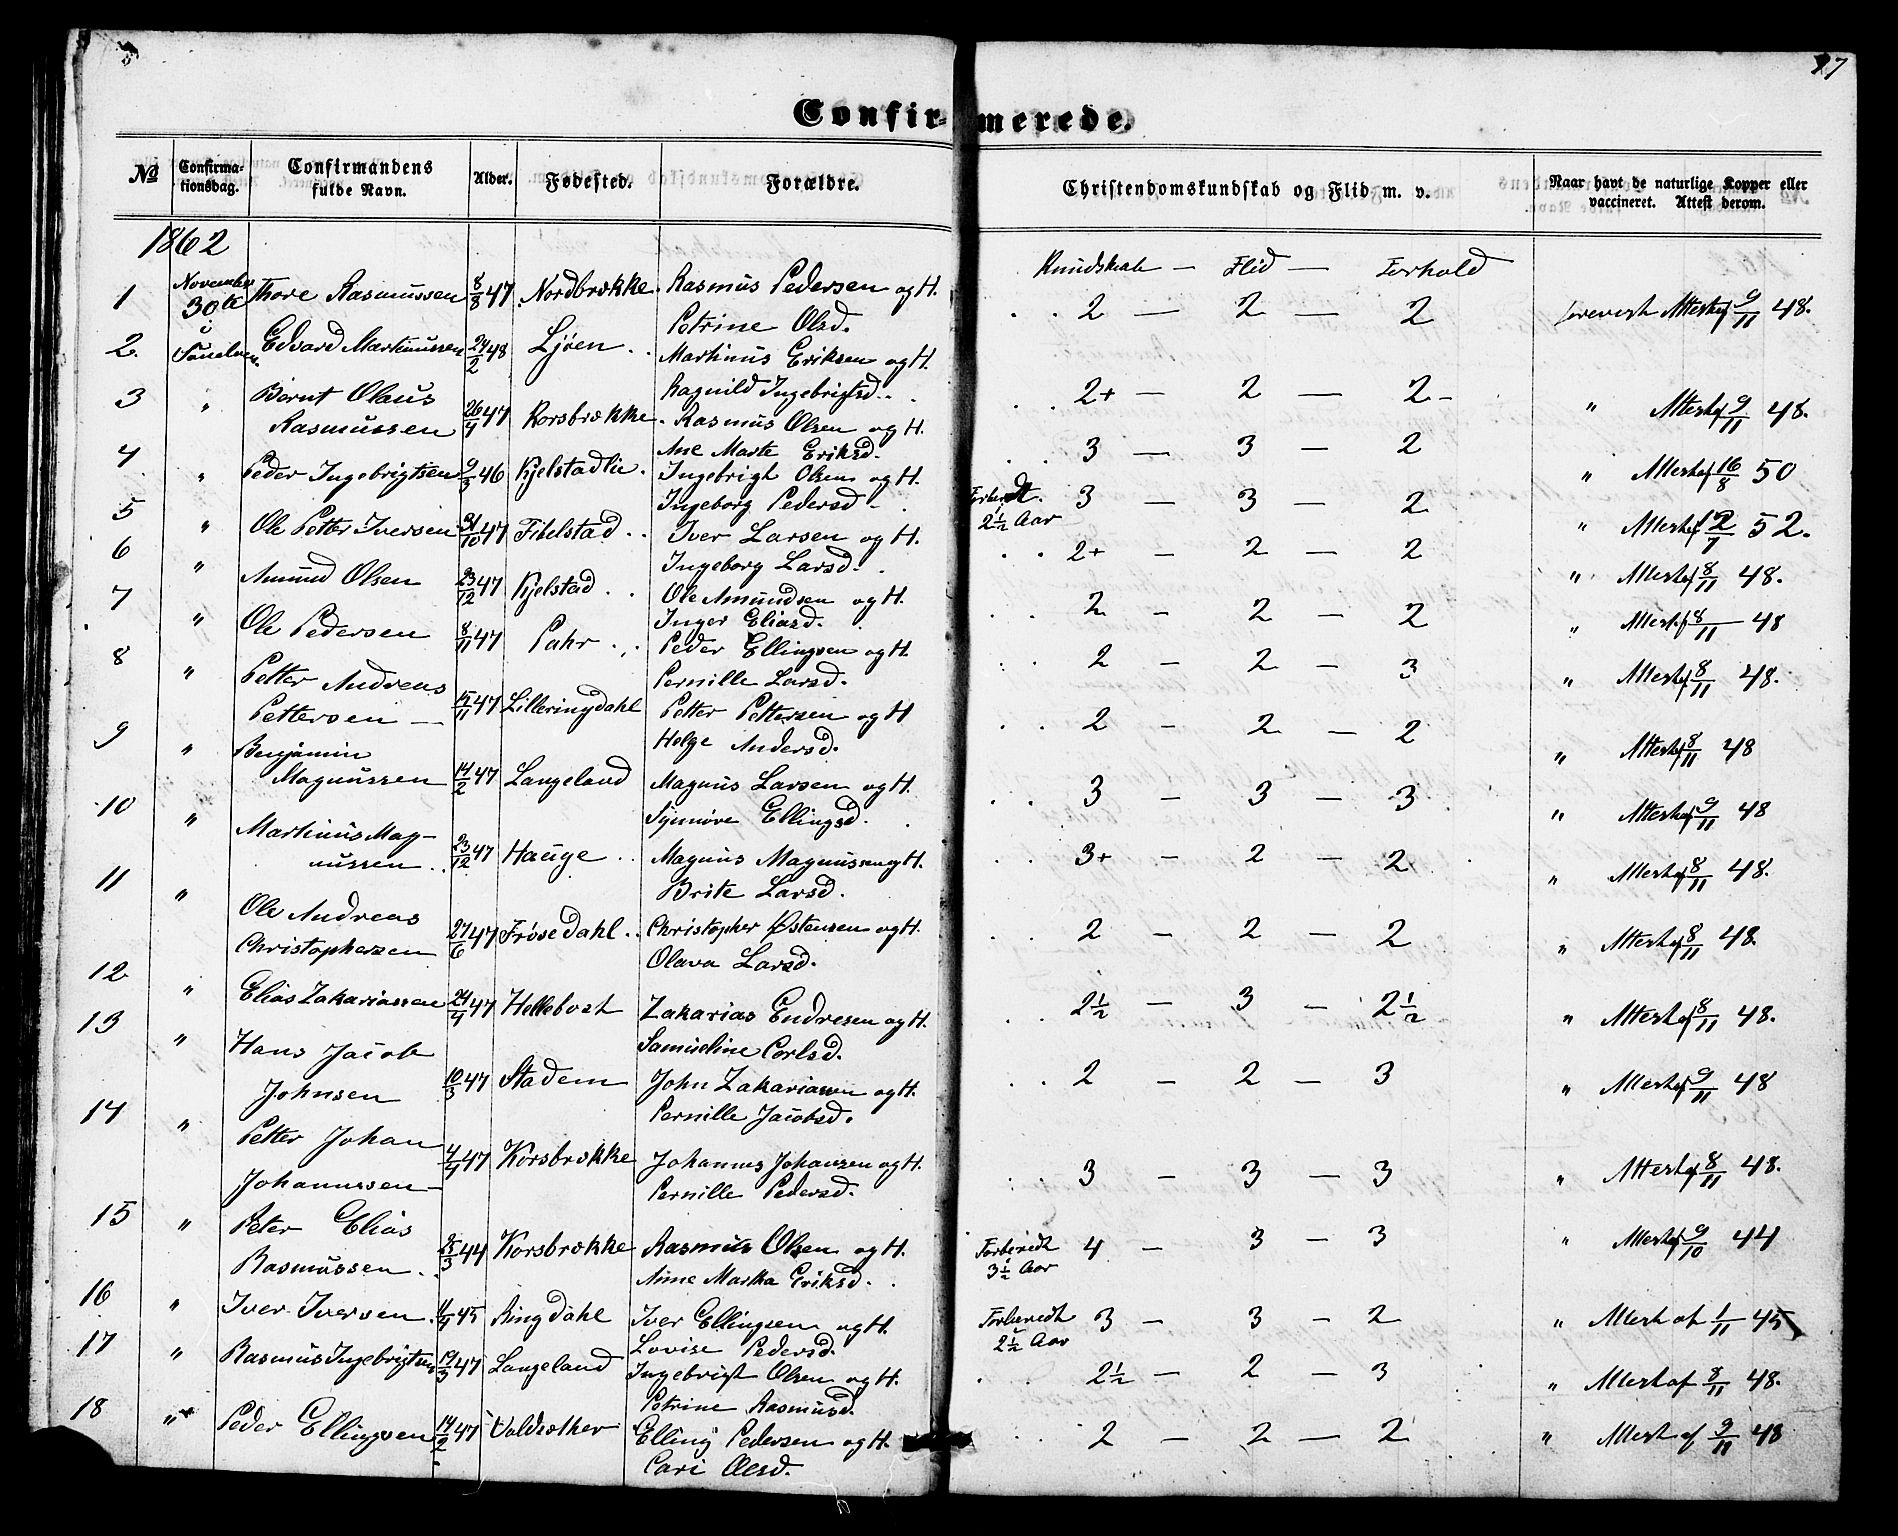 17
Confirmerede.
№ Confirmationsdag. Confirmandens fulde Navn. Alder. Fødested. Forældre. Christendomskundskab og Flid m. v. Naar havt de naturlige Kopper eller vaccineret. Attest derom.
1862
Kundskab — Flid — Forhold
1 November 30te i Sunelven Thore Rasmussen 8/8 47 Nordbrække Rasmus Pedersen og H. Petrine Olsd. 2 — 2 — 2 Attest af 9/11 48.
2. Edvard Martinussen 24/2 48 Ljøen Martinus Eriksen og H. Ragnild Ingebrigtsd. 2+ — 2 — 2 " Attest af 9/11 48.
3 " Bernt Olaus Rasmussen 26/4 47 Korsbrække Rasmus Olsen og H. Ane Marte Eriksd. 3 — 3 — 2 " Attest af 16/8 50
4 " Peder Ingebrigtsen 9/3 46 Kjelstadlie Ingebrigt Olsen og H. Ingeborg Pedersd. Forberedt 2½ Aar 3 — 3 — 2 " Attest af 52.
5 " Ole Petter Iversen 31/10 47 Fibelstad Iver Larsen og H. Ingeborg Larsd. 2+ — 2 — 2 " Attest af 8/11 48.
6 " Amund Olsen 23/12 47 Kjelstad Ole Amundsen og H. Inger Eliasd. 2 — 2 — 2 " Attest af 8/11 48
7 " Ole Pedersen 8/11 47 Pahr Peder Ellingsen og H. Pernille Larsd. 2 — 2 — 3 " Attest af 8/11 48.
8 " Petter Andreas Pettersen 15/11 47 Lilleringdahl Petter Pettersen og H Helge Andersd. 2 — 2 — 2 " Attest af 8/11 48
9 " Benjamin Magnussen 14/2 47 Langeland Magnus Larsen og H. Synnøve Ellingsd. 3 — 3 — 3 " Attest af 9/11 48
10 " Martinus Magnussen 23/12 47 Hauge Magnus Magnussen og H. Brite Larsd. 3+ — 2 — 2 " Attest af 8/11 48.
11 " Ole Andreas Christophersen 27/6 47 Frøsedahl Christopher Østensen og H. Olava Larsd. 2 — 2 — 2 " Attest af 8/11 48.
12 " Elias Zakariassen 24/4 47 Hellebost Zakarias Endresen og H. Samueline Carlsd. 2½ — 3 — 2½ " Attest af 8/11 48.
13 " Hans Jacob Johnsen 10/3 47 Stadem John Zakariassen og H. Pernille Jacobsd. 2 — 2 — 3 " Attest af 9/11 48
14 " Petter Johan Johannessen 4/4 47 Korsbrække Johannes Johansen og H. Pernille Pedersd. 3 — 3 — 3 " Attest af 8/11 48.
15 " Peter Elias Rasmussen 25/3 44 Korsbrække Rasmus Olsen og H. Anne Martha Eriksd. Forberedt 3½ Aar 4 — 3 — 3 " Attest af 9/10 44
16 " Iver Iversen 45 Ringdahl Iver Ellingsen og H. Lovise Pedersd. Forberedt 2½ Aar 3 — 3 — 2 " Attest af 1/11 45
17 " Rasmus Ingebrigtsen 19/3 47 Langeland Ingebrigt Olsen og H. Petrine Rasmusd. 2½ — 2 — 3 " Attest af 8/11 48.
18 " Peder Ellingsen 14/2 47 Voldsæther Elling Pedersen og H. Cari Olesd. 2 — 2 — 2 " Attest af 9/11 48